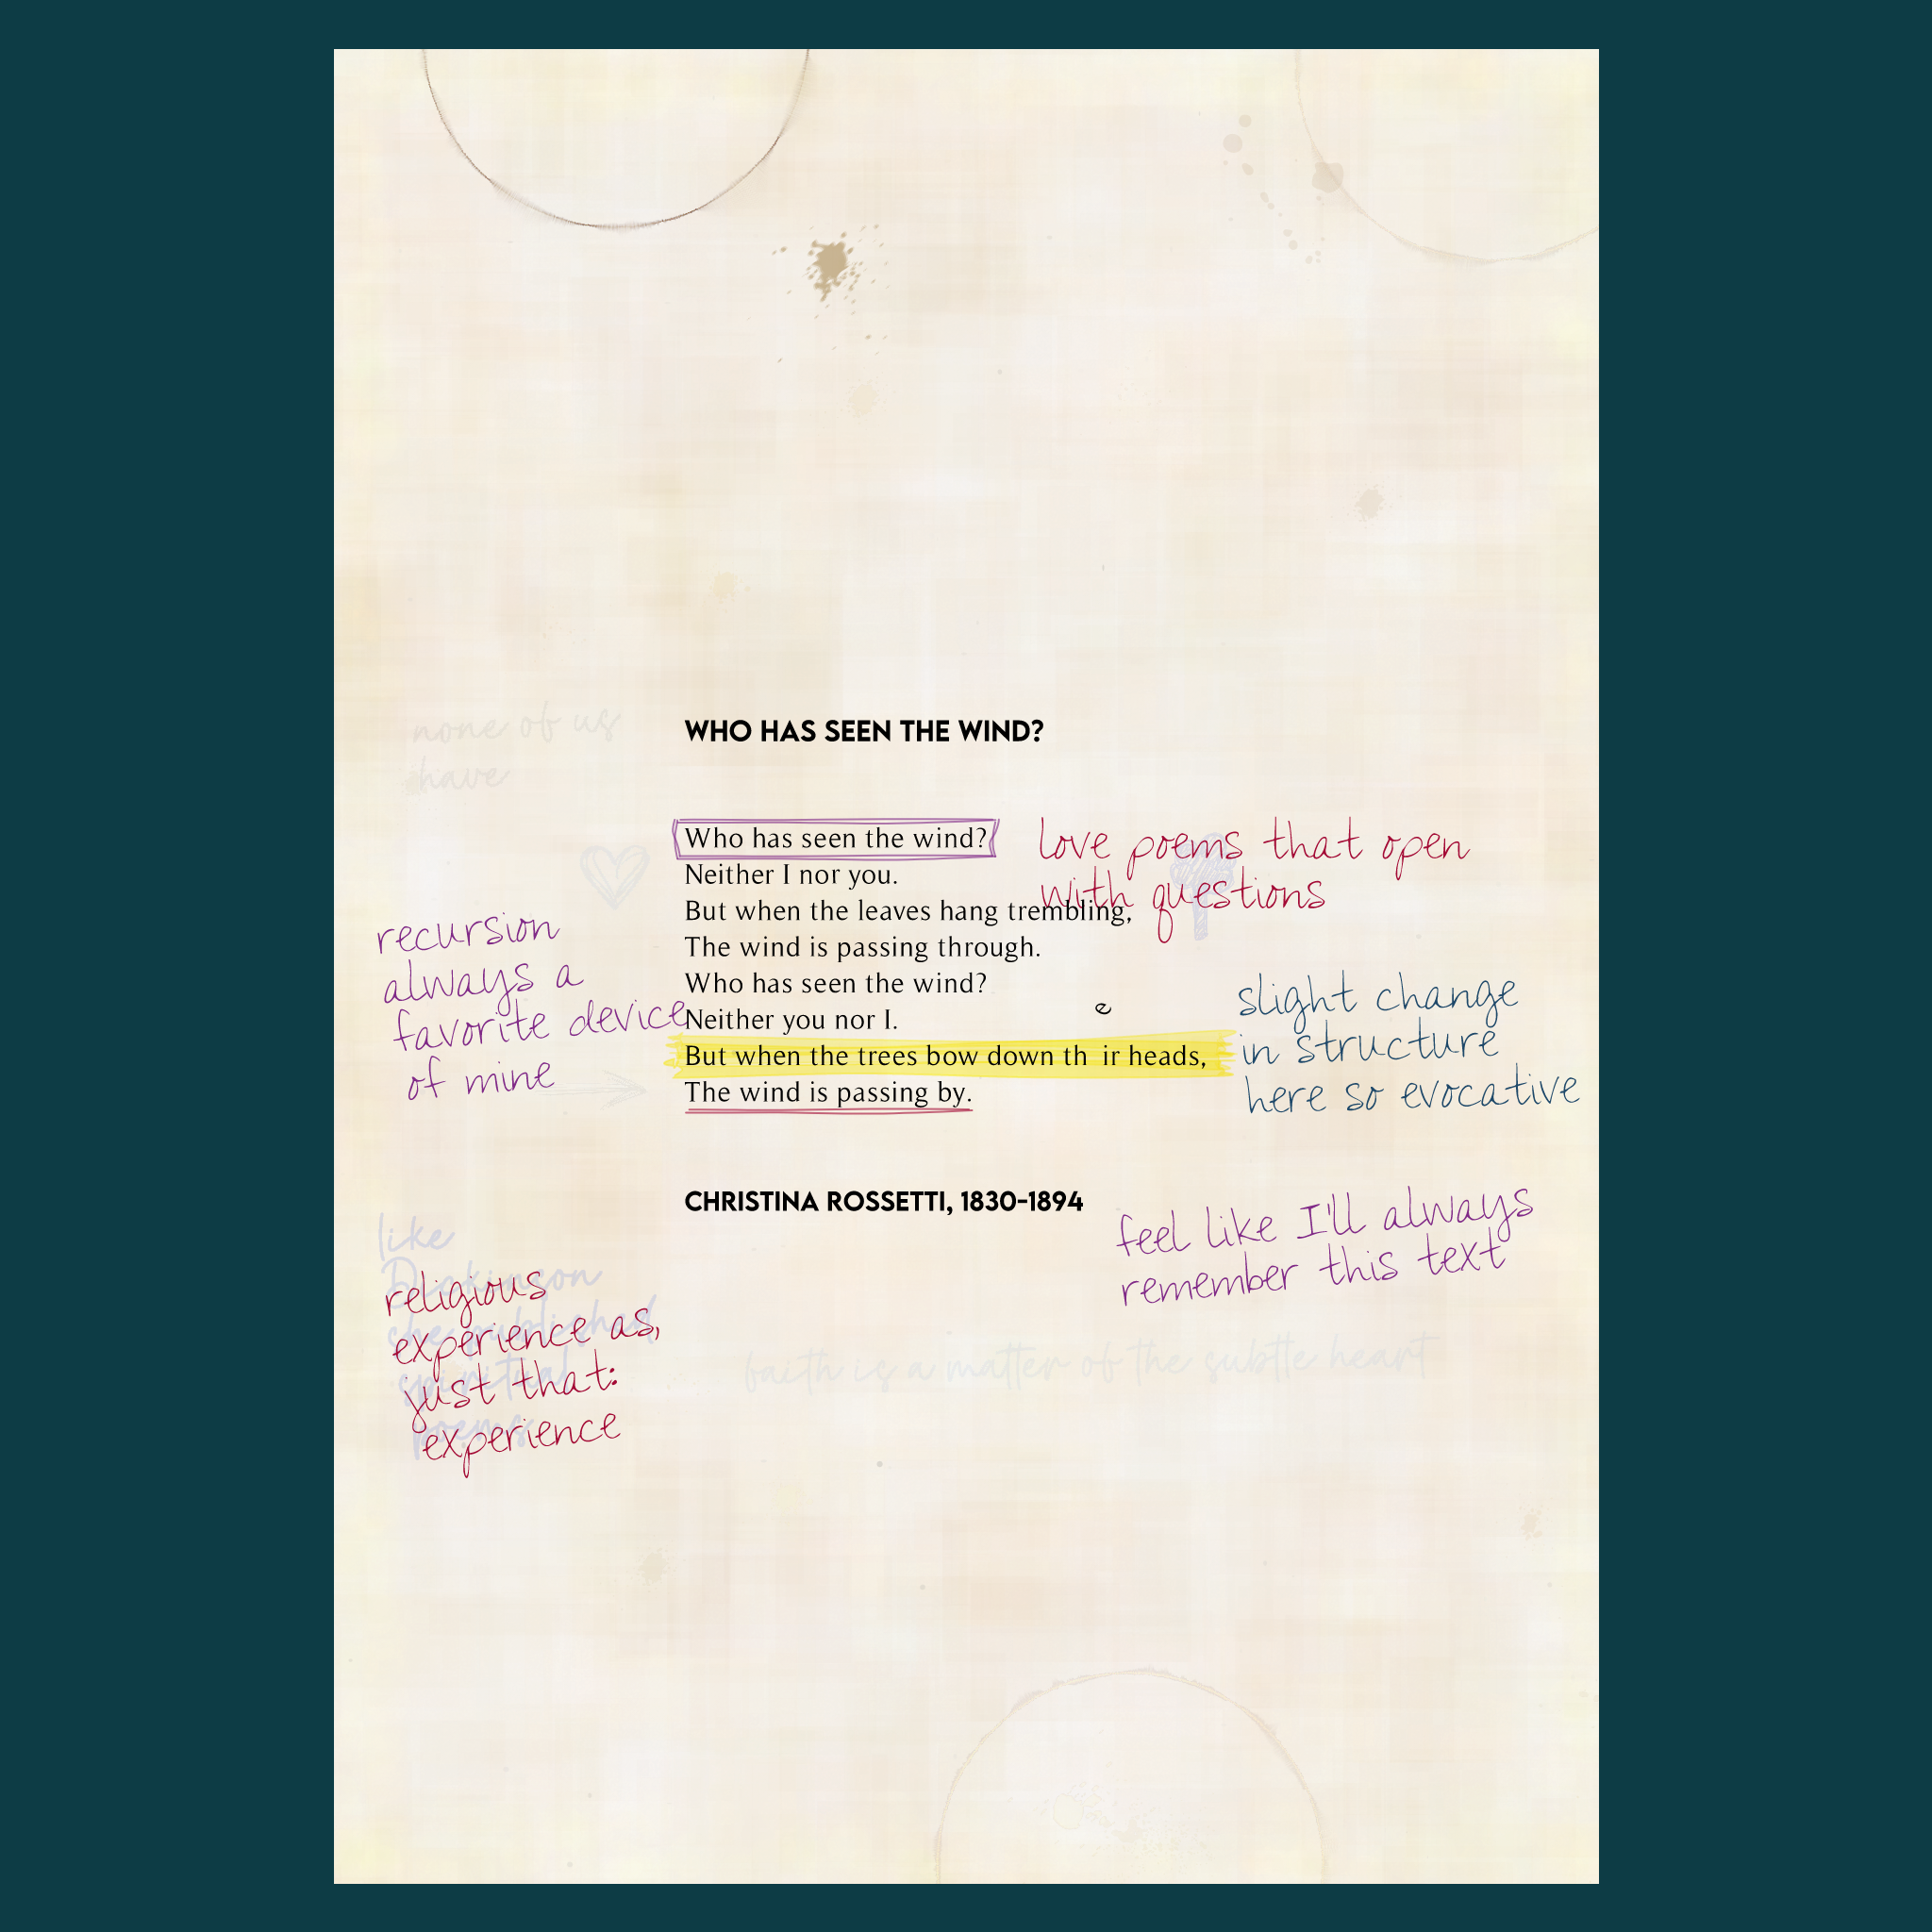 none of us
have
WHO HAS SEEN THE WIND?
Who has seen the wind?
Neither I nor you.
But when the leaves hang trembling,
The wind is passing through.
Who has seen the wind?
Neither you nor I.
e
But when the trees bow down th ir heads,
The wind is passing by.
love poems that open
with questions
recursion
always a
favorite device
of mine
slight change
in structure
here so evocative
CHRISTINA ROSSETTI, 1830-1894
feel like I'll always
remember this text
like
Dickinson
she published
spiritual
poems
religious
experience as,
just that:
experience
faith is a matter of the subtle heart